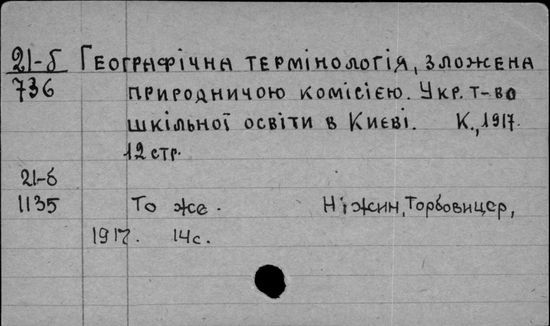 21-б Географічна термінологія, зложена
736 природничою комісією. Укр. т-во
шкільної освіти в Києві. К., 1917.
12 стр.
21-б
1135 То же. Ніжин, Торбовицер,
1917. 14с.